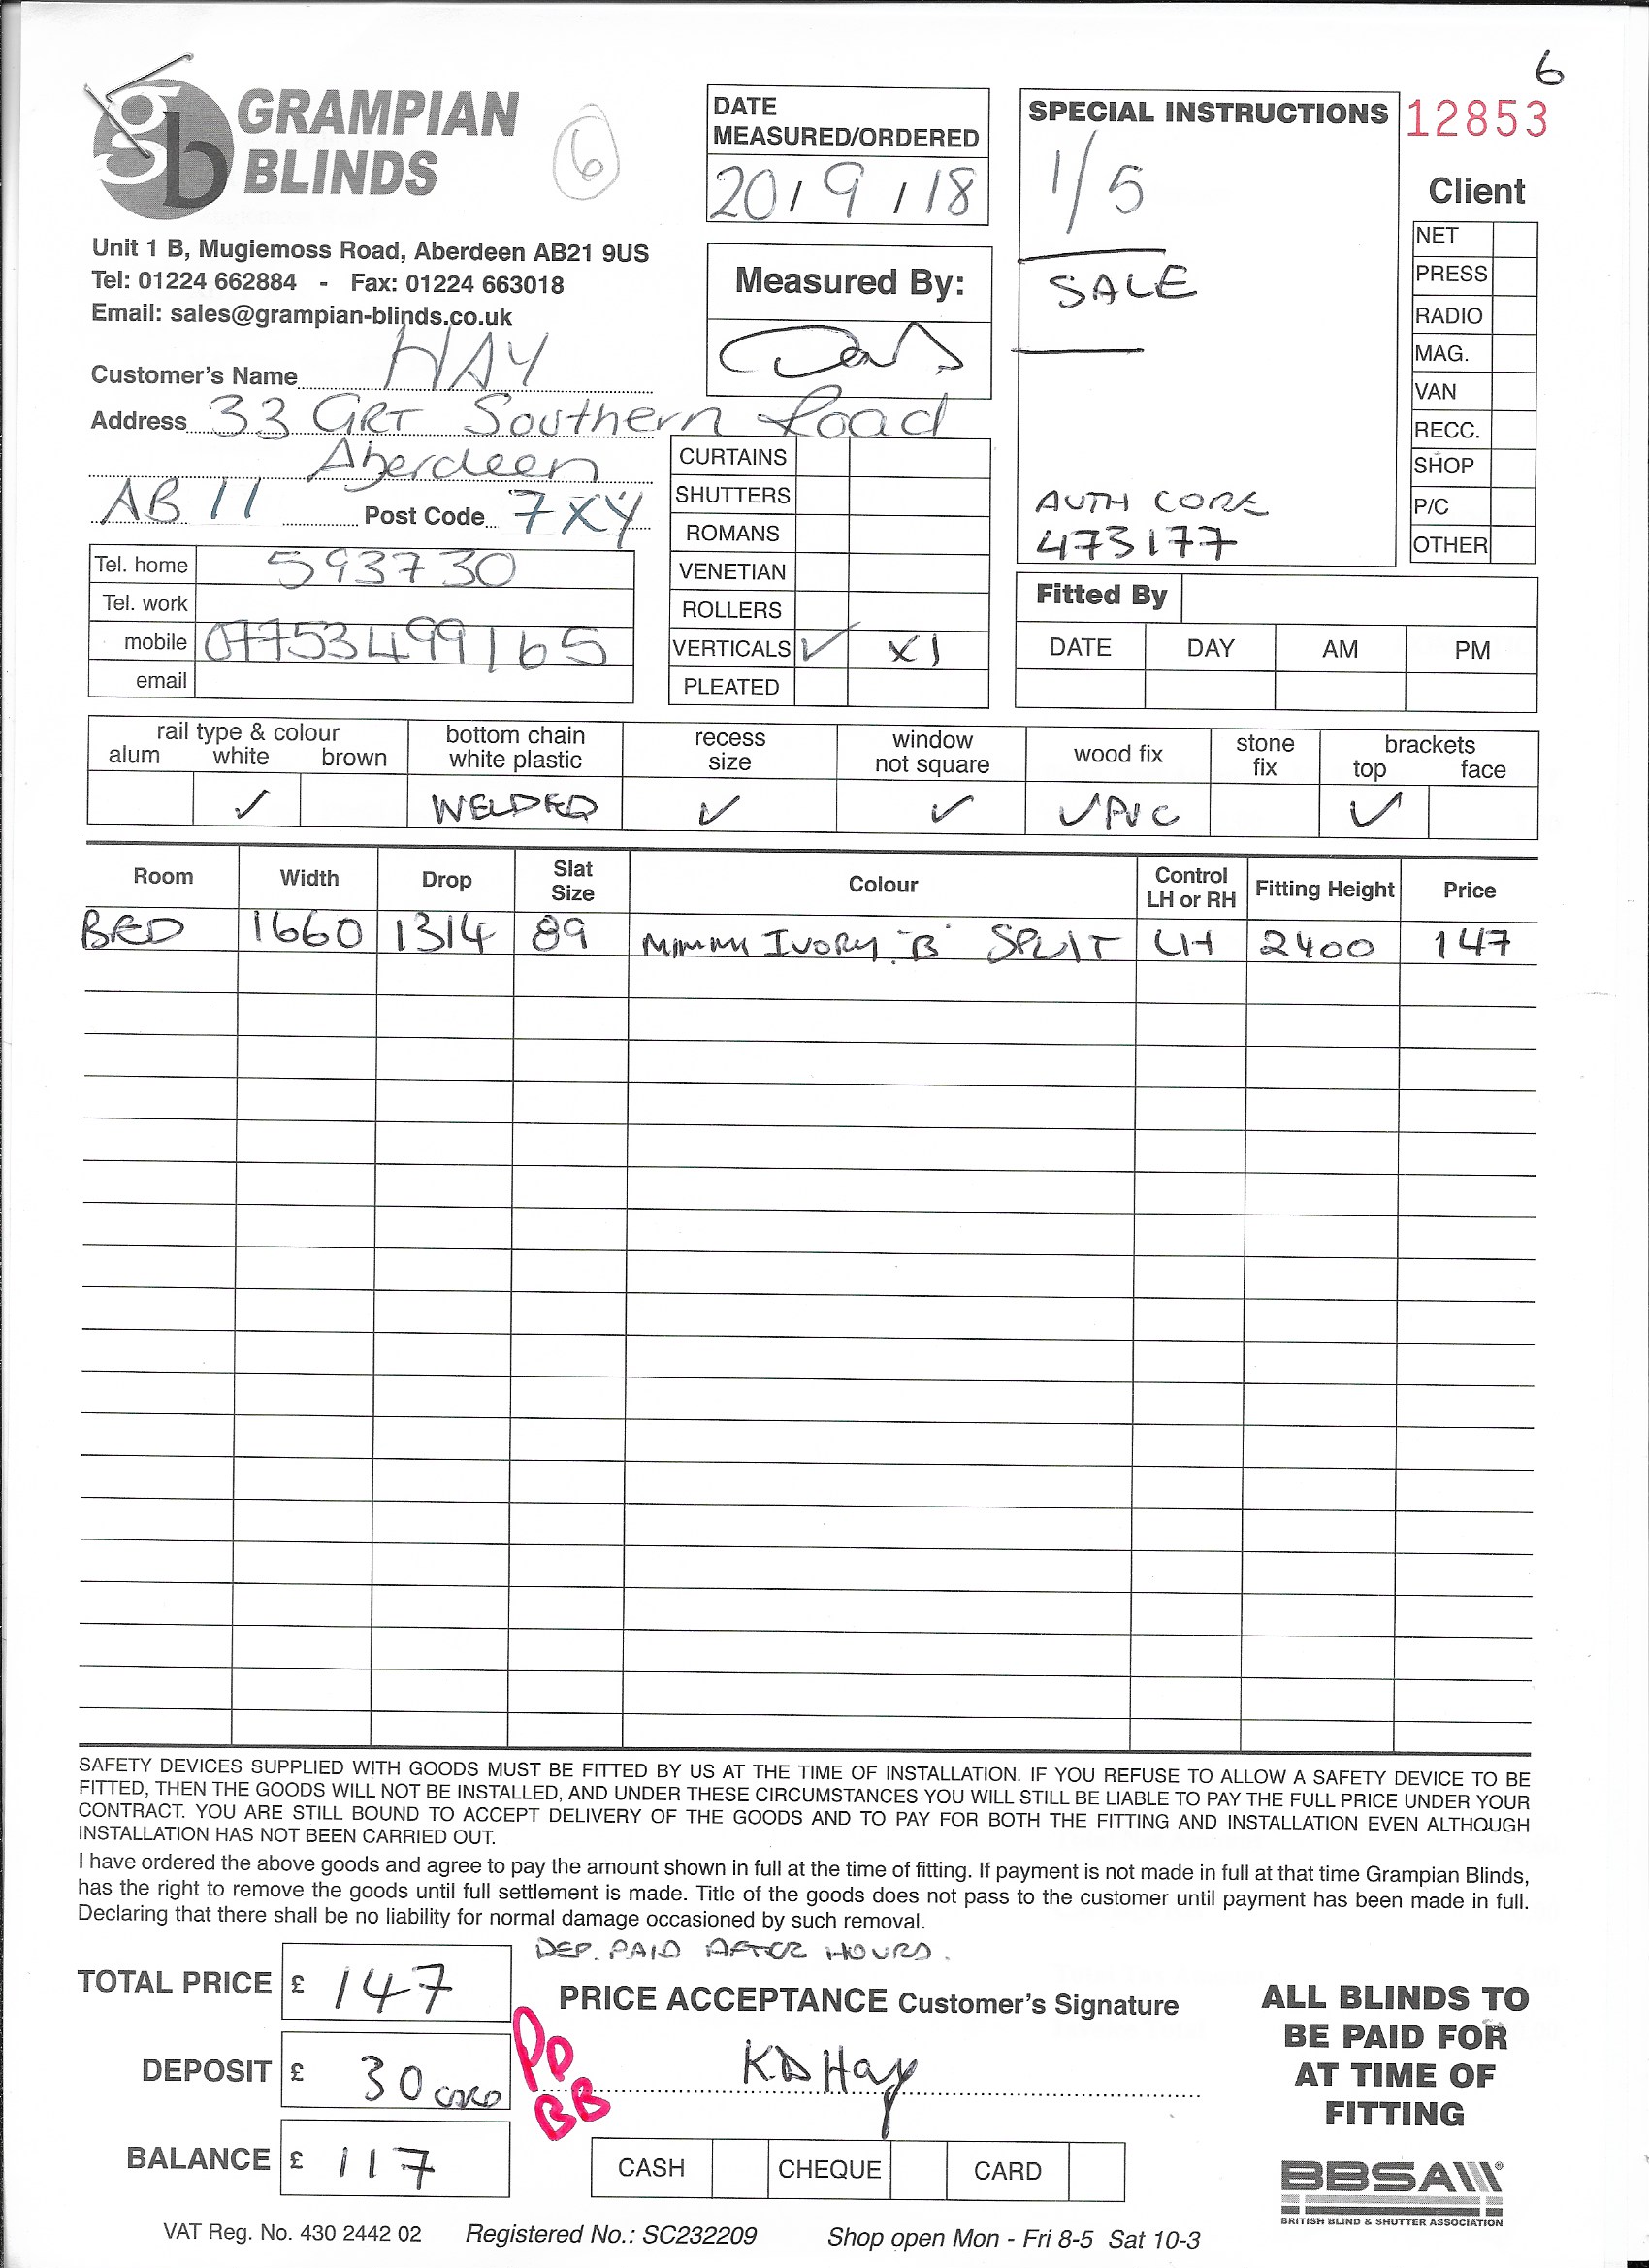 6
GRAMPIAN
BLINDS
6
gb
Unit 1 B, Mugiemoss Road, Aberdeen AB21 9US
Tel: 01224 662884 - Fax: 01224 663018
Email: sales@grampian-blinds.co.uk
Customer's Name HAY
Address 33 GRT Southern Road
Aberdeen
AB 11 Post Code 7XY
Tel. home 593730
Tel. work
mobile 07753499165
email
DATE
MEASURED/ORDERED
20/9/18
Measured By:
CURTAINS
SHUTTERS
ROMANS
VENETIAN
ROLLERS
VERTICALS ✓ X1
PLEATED
SPECIAL INSTRUCTIONS
1/5
SALE
AUTH CODE
473177
12853
Client
NET
PRESS
RADIO
MAG.
VAN
RECC.
SHOP
P/C
OTHER
Fitted By
DATE DAY AM PM
rail type & colour
alum white brown
bottom chain
white plastic
recess
size
window
not square
wood fix
stone
fix
brackets
top face
✓ WELDED ✓ ✓ ✓ PVC ✓
Room Width Drop Slat Size Colour Control LH or RH Fitting Height Price
BED 1660 1314 89 IVORY "B" SPLIT LH 2400 147
SAFETY DEVICES SUPPLIED WITH GOODS MUST BE FITTED BY US AT THE TIME OF INSTALLATION. IF YOU REFUSE TO ALLOW A SAFETY DEVICE TO BE
FITTED, THEN THE GOODS WILL NOT BE INSTALLED, AND UNDER THESE CIRCUMSTANCES YOU WILL STILL BE LIABLE TO PAY THE FULL PRICE UNDER YOUR
CONTRACT. YOU ARE STILL BOUND TO ACCEPT DELIVERY OF THE GOODS AND TO PAY FOR BOTH THE FITTING AND INSTALLATION EVEN ALTHOUGH
INSTALLATION HAS NOT BEEN CARRIED OUT.
I have ordered the above goods and agree to pay the amount shown in full at the time of fitting. If payment is not made in full at that time Grampian Blinds,
has the right to remove the goods until full settlement is made. Title of the goods does not pass to the customer until payment has been made in full.
Declaring that there shall be no liability for normal damage occasioned by such removal.
DEP. PAID AFTER HOURS.
TOTAL PRICE £ 147
DEPOSIT £ 30 CARD
BALANCE £ 117
PD
BB
PRICE ACCEPTANCE Customer's Signature
KD Hay
CASH CHEQUE CARD
ALL BLINDS TO
BE PAID FOR
AT TIME OF
FITTING
BBSA
BRITISH BLIND & SHUTTER ASSOCIATION
VAT Reg. No. 430 2442 02 Registered No.: SC232209 Shop open Mon - Fri 8-5 Sat 10-3